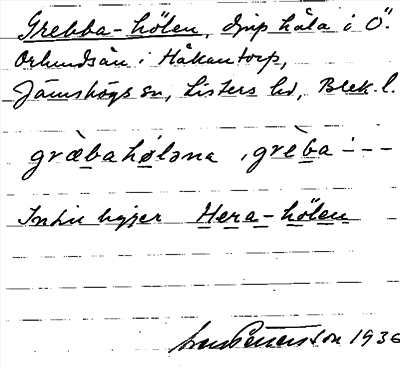 Grebba-hölen, djup håla i Ö.
Orlundsån i Håkantorp,
Jämshögs sn, Listers hd, Blek. l.
græbahøləna , grèba - - - -
Intill ligger Hera-hölen
1936